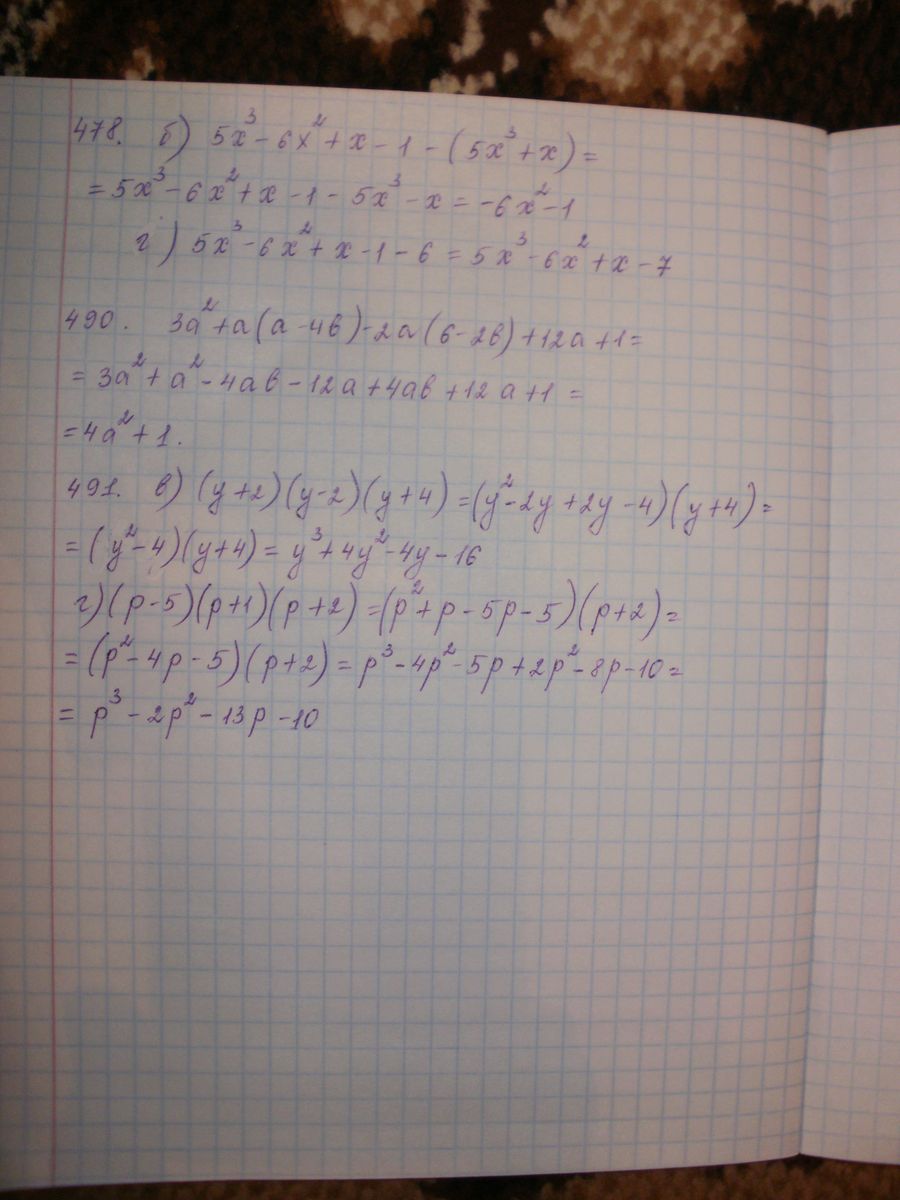 478. б) 5x³ - 6x² + x - 1 - (5x³ + x) =
= 5x³ - 6x² + x - 1 - 5x³ - x = -6x² - 1
г) 5x³ - 6x² + x - 1 - 6 = 5x³ - 6x² + x - 7
490. 3a² + a(a - 4в) - 2a(6 - 2в) + 12a + 1 =
= 3a² + a² - 4aв - 12a + 4aв + 12a + 1 =
= 4a² + 1.
491. в) (y + 2)(y - 2)(y + 4) = (y² - 2y + 2y - 4)(y + 4) =
= (y² - 4)(y + 4) = y³ + 4y² - 4y - 16
г) (p - 5)(p + 1)(p + 2) = (p² + p - 5p - 5)(p + 2) =
= (p² - 4p - 5)(p + 2) = p³ - 4p² - 5p + 2p² - 8p - 10 =
= p³ - 2p² - 13p - 10